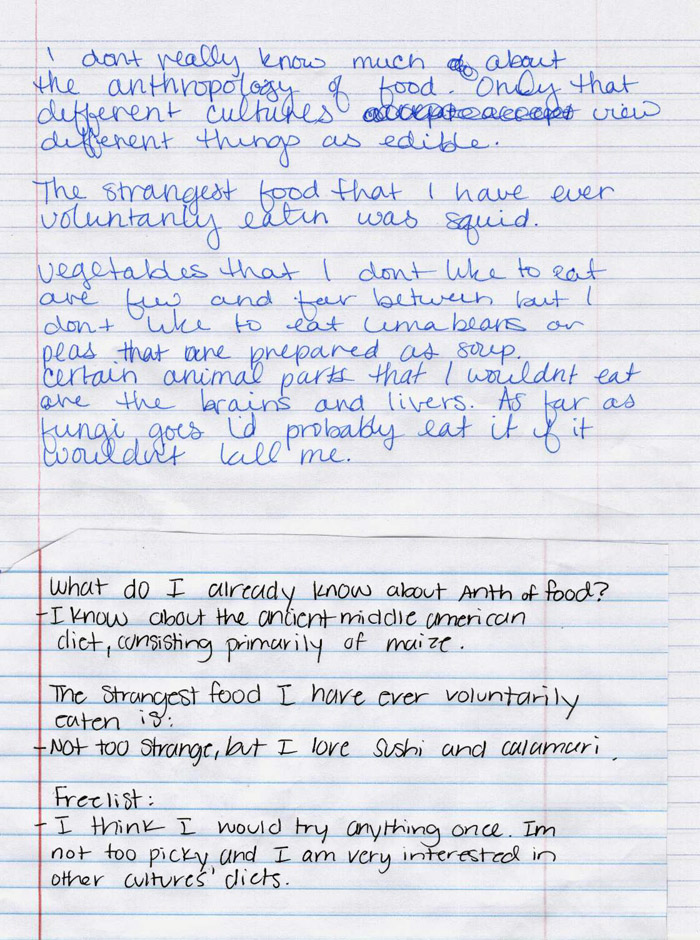 I dont really know much about
the anthropology of food. Only that
different cultures accept accept view
different things as edible.
The strangest food that I have ever
voluntarily eatin was squid.
vegetables that I dont like to eat
are few and far between but I
don't like to eat lima beans or
peas that are prepared as soup.
certain animal parts that I wouldnt eat
are the brains and livers. As far as
fungi goes I'd probably eat it if it
wouldn't kill me.
What do I already know about Anth of food?
-I know about the ancient middle american
diet, consisting primarily of maize.
The strangest food I have ever voluntarily
eaten is:
-Not too strange, but I love sushi and calamari.
Freelist:
- I think I would try anything once. Im
not too picky and I am very interested in
other cultures' diets.